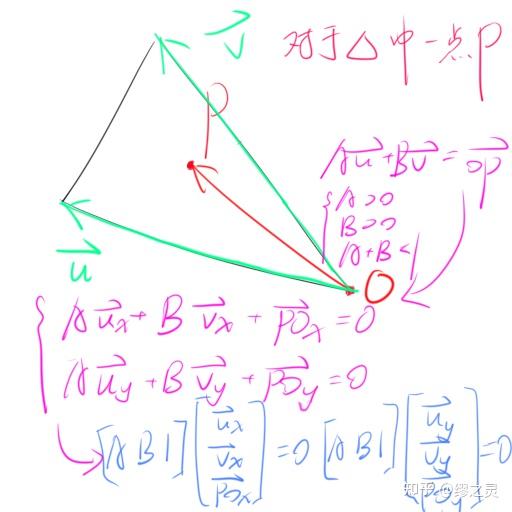 对于△中一点P
v⃗
P
Au⃗+Bv⃗=OP⃗
{A>0
B>0
A+B<1
u⃗
O
{Au⃗x+Bv⃗x+PO⃗x=0
Au⃗y+Bv⃗y+PO⃗y=0
[A B 1][u⃗x v⃗x PO⃗x]=0 [A B 1][u⃗y v⃗y PO⃗y]=0
知乎 @缪之灵